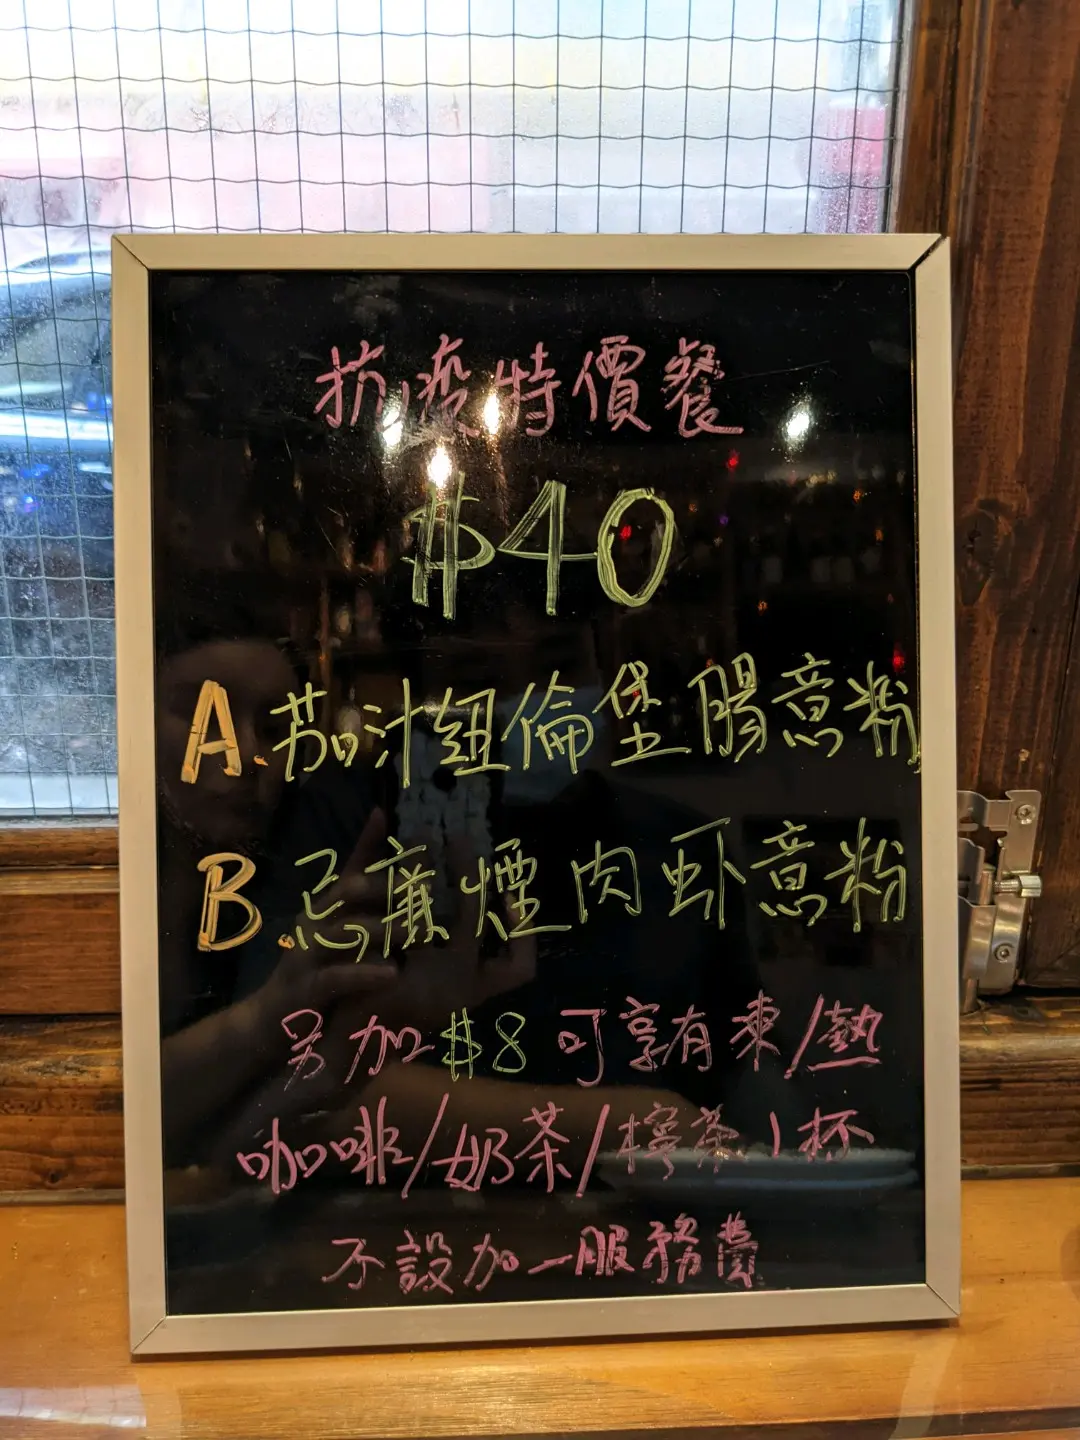 抗疫特價餐
$40
A.茄汁紐倫堡腸意粉
B.忌廉煙肉虾意粉
另加$8可享有凍/熱
咖啡/奶茶/檸茶1杯
不設加一服務費